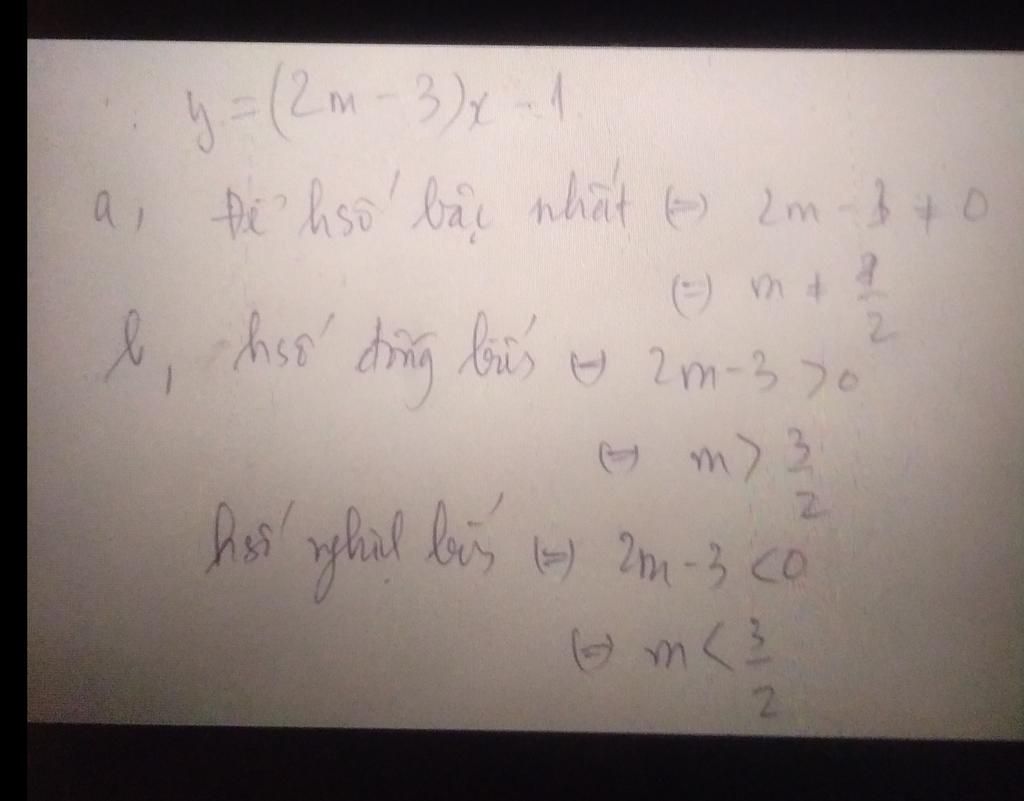 y = (2m - 3)x - 1
a, Để hsố bậc nhất (=) 2m - 3 ≠ 0
(=) m ≠ 3/2
b, hsố đồng biến (=) 2m - 3 > 0
(=) m > 3/2
hsố nghịch biến (=) 2m - 3 < 0
(=) m < 3/2